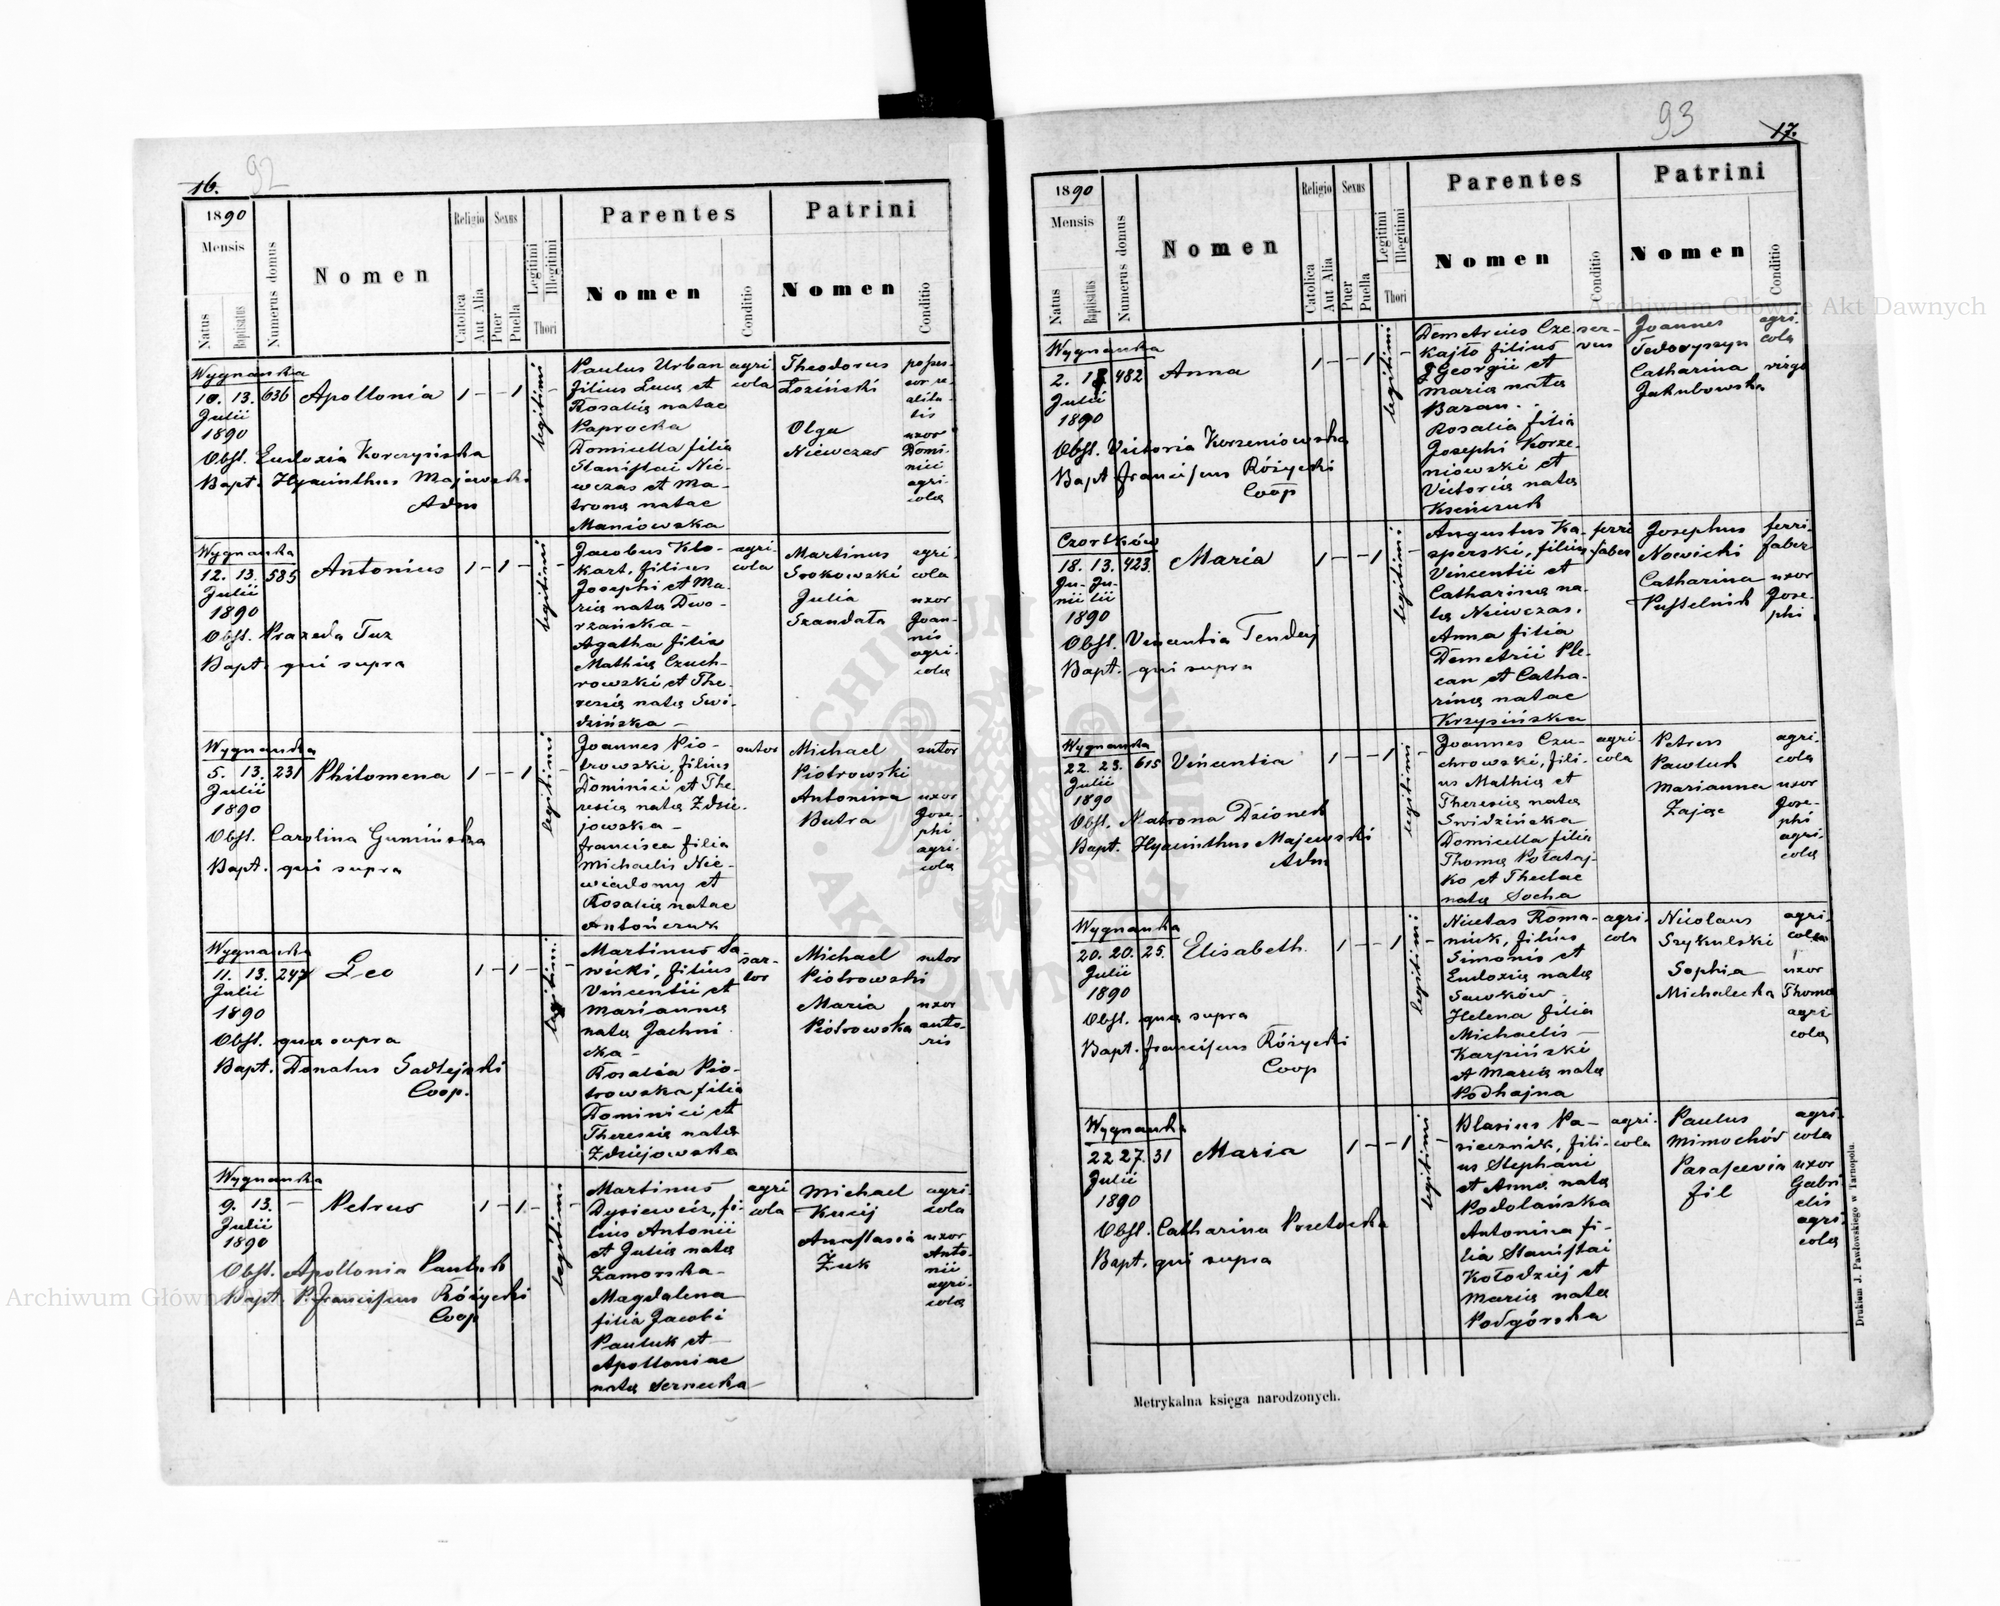 16. 92
1890
Mensis
Natus
Baptisatus
Numerus domus
Nomen
Religio
Catholica
Aut Alia
Sexus
Puer
Puella
Legitimi
Illegitimi
Thori
Parentes
Nomen
Conditio
Patrini
Nomen
Conditio
Wygnanka
10. 13. 636 Apollonia 1 – – 1 –
Julii
1890
Obst. Eudoxia Korczyńska
Bapt. Hyacinthus Majewski
Adm
legitimi
Paulus Urban
filius Lucæ et
Rosaliæ natae
Paprocka
Domicella filia
Stanislai Nie-
wczas et Ma-
tronæ natae
Maniowska
agri
cola
Theodorus
Łoziński
Olga
Niewczas
posses-
sor re-
alita-
tis
uxor
Domi-
nici
agri-
colæ
Wygnanka
12. 13. 585 Antonius 1 – 1 – –
Julii
1890
Obst. Praxeda Tuz
Bapt. qui supra
legitimi
Jacobus Klo-
kart, filius
Josephi et Ma-
riæ natæ Dwo-
rzańska –
Agatha filia
Mathiæ Czuch-
rowski et The-
resiæ natæ Swi-
dzińska –
agri-
cola
Martinus
Srokowski
Julia
Szandata
agri-
cola
uxor
Joan-
nis
agri-
colæ
Wygnanka
5. 13. 231 Philomena 1 – – 1 –
Julii
1890
Obst. Carolina Gumińska
Bapt. qui supra
legitimi
Joannes Pio-
trowski, filius
Dominici et The-
resiæ natæ Zdzie-
jowska –
Francisca filia
Michaelis Nie-
wiadomy et
Rosaliæ natae
Antończuk
sutor
Michael
Piotrowski
Antonina
Butra
sutor
uxor
Jose-
phi
agri-
colæ
Wygnanka
11. 13. 247 Leo 1 – 1 – –
Julii
1890
Obst. quæ supra
Bapt. Donatus Sadlejski
Coop.
legitimi
Martinus Sa-
wicki, filius
Vincentii et
Mariannæ
natæ Jachni
cka –
Rosalia Pio-
trowska filia
Dominici et
Theresiæ natæ
Zdziejowska
sar-
tor
Michael
Piotrowski
Maria
Piotrowska
sutor
uxor
suto-
ris
Wygnanka
9. 13. – Petrus 1 – 1 – –
Julii
1890
Obst. Apollonia Pauluk
Bapt. P. Franciscus Różycki
Coop
legitimi
Martinus
Dysiewicz, fi-
lius Antonii
et Juliæ natæ
Zamorska –
Magdalena
filia Jacobi
Pauluk et
Apolloniae
natæ Sernecka
agri
cola
Michael
Kucij
Anastasia
Żuk
agri-
cola
uxor
Anto-
nii
agri-
colæ
93 17.
1890
Mensis
Natus
Baptisatus
Numerus domus
Nomen
Religio
Catolica
Aut Alia
Sexus
Puer
Puella
Legitimi
Illegitimi
Thori
Parentes
Nomen
Conditio
Patrini
Nomen
Conditio
Wygnanka
2. 13. 482 Anna 1 – – 1 –
Julii
1890
Obst. Victoria Korzeniowska
Bapt Franciscus Różycki
Coop
legitimi
Demetrius Cze-
kajło filius
Georgii et
Mariæ natæ
Baran.
Rosalia filia
Josephi Korze-
niowski et
Victoriæ natæ
Kseńczuk
ser-
vus
Joannes
Fedoryszyn
Catharina
Jakubowska
agri-
cola
virgo
Czortków
18. 13. 423. Maria 1 – – 1 –
Ju- Ju-
nii lii
1890
Obst. Vincentia Tendej
Bapt. qui supra
legitimi
Augustus Ka-
sperski, filius
Vincentii et
Catharinæ na-
tæ Niewczas.
Anna filia
Demetrii Ple-
can et Catha-
rinæ natae
Krzysińska
ferri
faber
Josephus
Nowicki
Catharina
Pustelnik
ferri-
faber
uxor
Jose-
phi
Wygnanka
22. 23. 615 Vincentia 1 – – 1 –
Julii
1890
Obst. Matrona Dzionek
Bapt. Hyacinthus Majewski
Adm
legitimi
Joannes Czu-
chrowski, fili-
us Mathiæ et
Theresiæ natæ
Swidzińska
Domicella filia
Thomæ Połataj-
ko et Theclae
natæ Socha
agri-
cola
Petrus
Pawluk
Marianna
Zając
agri-
cola
uxor
Jose-
phi
agri-
colæ
Wygnanka
20. 20. 25. Elisabeth. 1 – – 1 –
Julii
1890
Obst. quæ supra
Bapt. Franciscus Różycki
Coop
legitimi
Nicetas Roma-
niuk, filius
Simonis et
Eudoxiæ natæ
Sawków
Helena filia
Michaelis –
Karpiński
et Mariæ natæ
Podhajna
agri-
cola
Nicolaus
Szykulski
Sophia
Michalecka
agri-
cola
uxor
Thomæ
agri-
colæ
Wygnanka
22 27. 31 Maria 1 – – 1 –
Julii
1890
Obst. Catharina Pocztowska
Bapt. qui supra
legitimi
Blasius Pa-
siecznik, fili-
us Stephani
et Annæ natæ
Podolańska
Antonina fi-
lia Stanislai
Kołodziej et
Mariæ natæ
Podgórska
agri-
cola
Paulus
Mimochód
Parascevia
Fil
agri-
cola
uxor
Gabri-
elis
agri-
colæ
Metrykalna księga narodzonych.
Drukiem J. Pawłowskiego w Tarnopolu.
Archiwum Główne Akt Dawnych
Archiwum Główne Akt Dawnych
ARCHIWUM GŁÓWNE AKT DAWNYCH